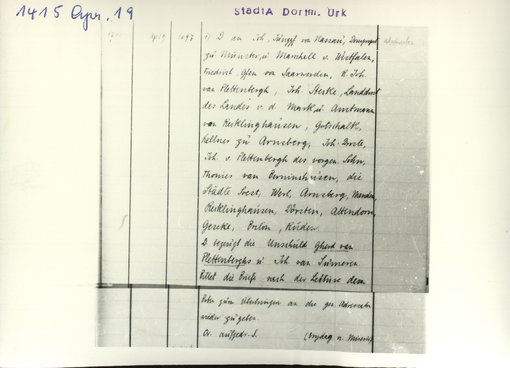 1415 Apr. 19
StadtA Dortm. Urk
Apr 19 1097
1) D an Joh, von Nassau, Dompropst
zu Münster, u Marschall v. Westfalen,
Friedrich, Gfen von Saarwerden, H. Joh.
van Plettenbergh, Joh. Sterke, Landdrost
des Landes v. d. Mark, u Amtmann
von Recklinghausen, Gotschalk,
Kellner zu Arnsberg, Joh. Droste,
Joh. v. Plettenbergh des vorgen. Sohn,
Thonies van die
Städte Soest, Werl, Arnsberg, Menden,
Recklinghausen, Dorsten, Attendorn,
Geseke, Brilon, Rüden
D. bezeugt die Unschuld Gherd van
Plettenberghs u Joh van Summeren
Bittet die Briefe nach der Lektüre dem
Boten zum Überbringen an die gen Adressaten
wieder zu geben
Or. aufgedr. S.